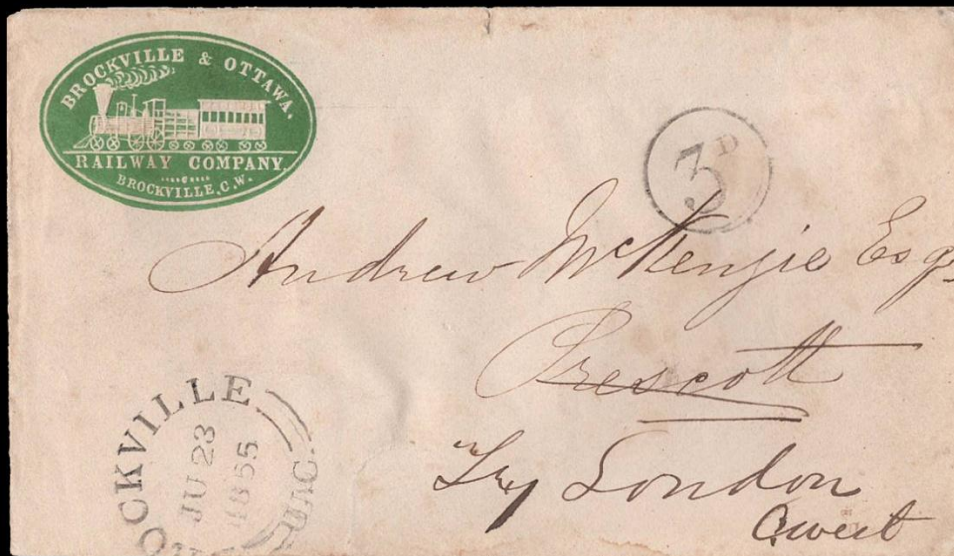 BROCKVILLE & OTTAWA.
RAILWAY COMPANY.
BROCKVILLE, C.W.
3D
Andrew McKenzie Esq
Prescott
Try London
C West
OCKVILLE
JU 23
1855
U.C.